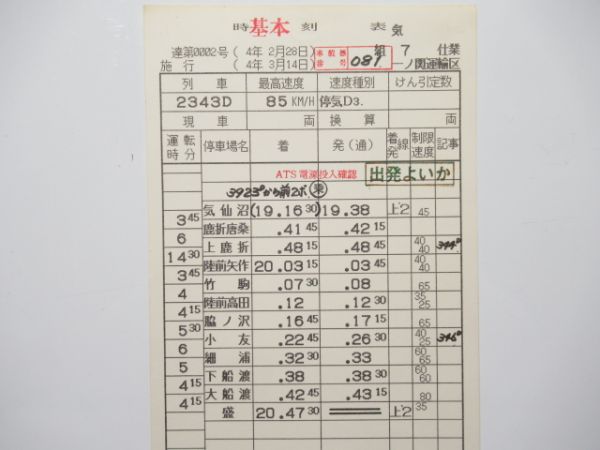 時 基本 刻 表 気
達第0002号 ( 4年 2月28日) 組 7 仕業
施 行 ( 4年 3月14日) 087 一ノ関運輸区
列 車 最高速度 速度種別 けん引定数
2343D 85KM/H 停気D3.
現 両 換 算 両
運転時分 停車場名 着 発(通) 着発線 制限速度 記事
ATS電源投入確認 出発よいか
3923Dから前2ボ 乗
気仙沼 (19.16 30) 19.38 上2 45
3 45
鹿折唐桑 .41 45 .42 15
6
上鹿折 .48 15 .48 45 40 40
14 30
陸前矢作 20.03 15 .03 45 40 40
3 45
竹駒 .07 30 .08 65
4
陸前高田 .12 .12 30 35 25
4 15
脇ノ沢 .16 45 .17 15 65
5 30
小友 .22 45 .26 30 40 25 346D
6
細浦 .32 30 .33 60 65
5
下船渡 .38 .38 30 60 60
4 15
大船渡 .42 45 .43 15 80
4 15
盛 20.47 30 上2 35